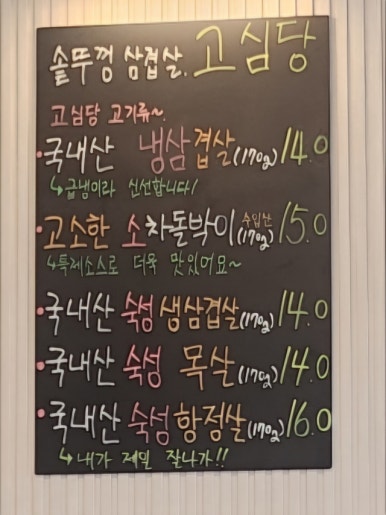 솥뚜껑 삼겹살. 고심당
고심당 고기류~
·국내산 냉삼겹살(170g) 14.0
↳급냉이라 신선합니다!
·고소한 소차돌박이 수입산 (170g) 15.0
↳특제소스로 더욱 맛있어요~
·국내산 숙성 생삼겹살(170g) 14.0
·국내산 숙성 목살(170g) 14.0
·국내산 숙성 항정살(170g) 16.0
↳내가 제일 잘나가!!